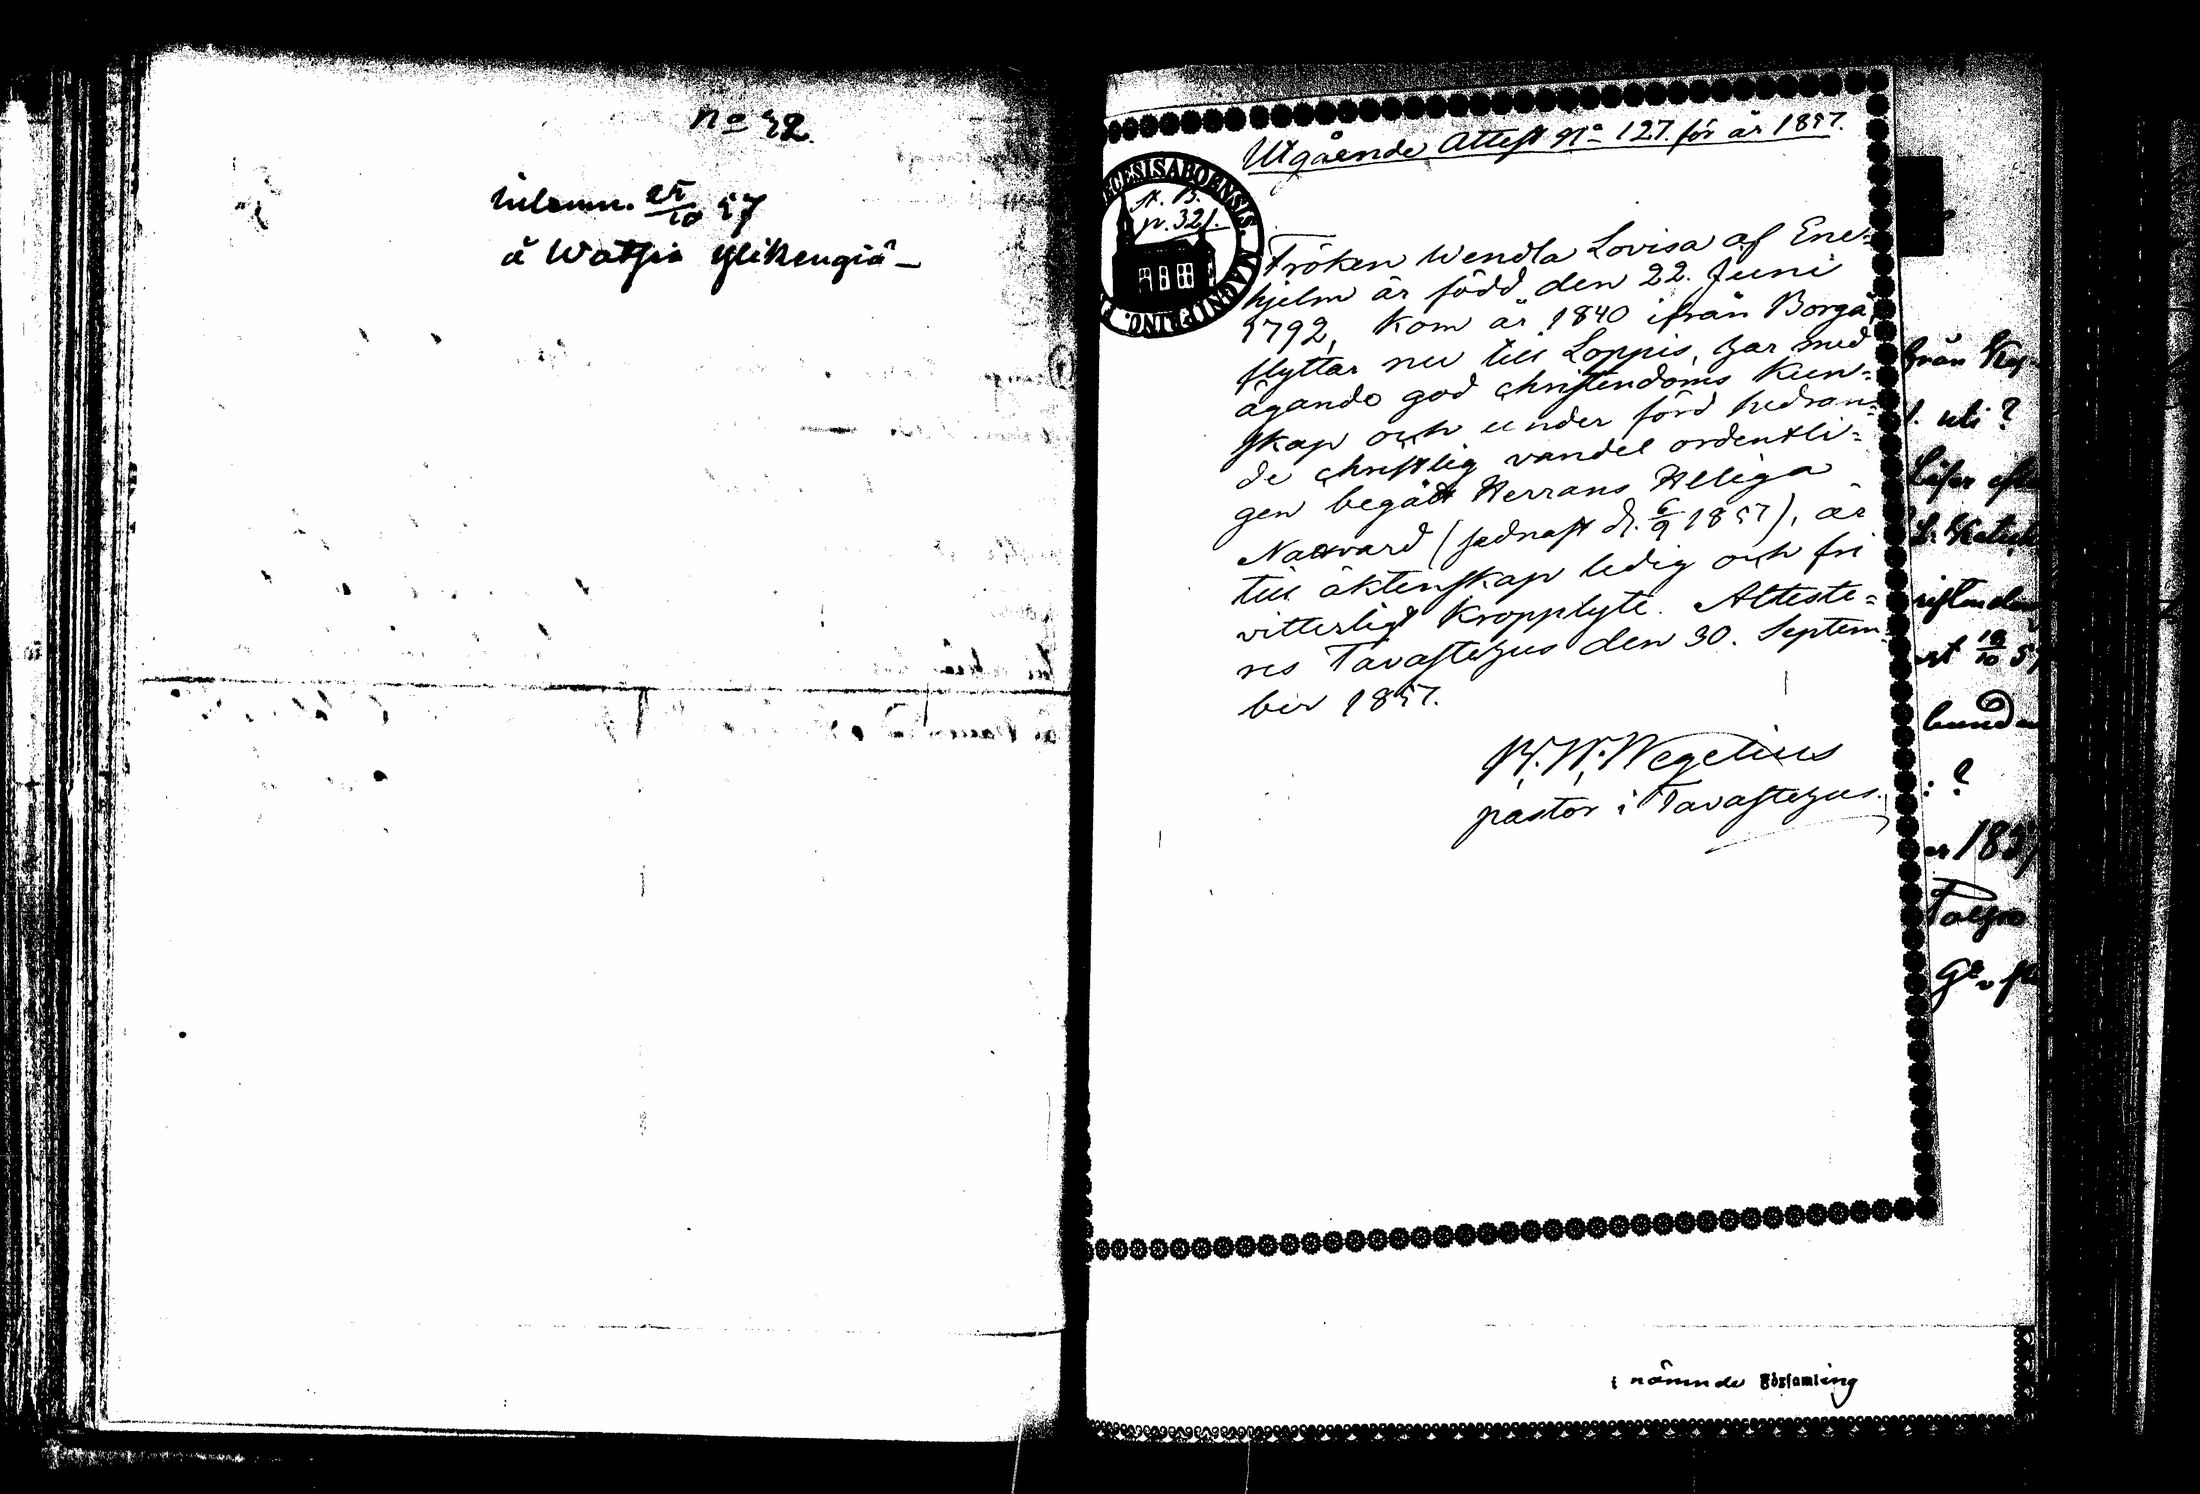 No 42.
inlemn. 25/10 57
å Watsia Ylikengiä –
Utgående Attest No 127. för år 1857.
CESISABOENSIS. MAGNI PRINC. F
K. B.
p. 321.
Fröken Wendla Lovisa af Ene-
hjelm är född den 22. Juni
1792, kom år 1840 ifrån Borgå,
flyttar nu till Loppis, har med
ägande god christendoms kun-
skap och under förd hedran-
de christlig vandel ordentli-
gen begått Herrans Heliga
Nattvard (sednast d. 6/9 1857), är
till äktenskap ledig och fri
vitterligt kropplyte. Atteste-
res Tavastehus den 30. Septem-
ber 1857.
Wegelius
pastor i Tavastehus.
från
uti ?
Läser
L: Katech
ristendom
18/10 57
: ?
1857
i nämnde Församling